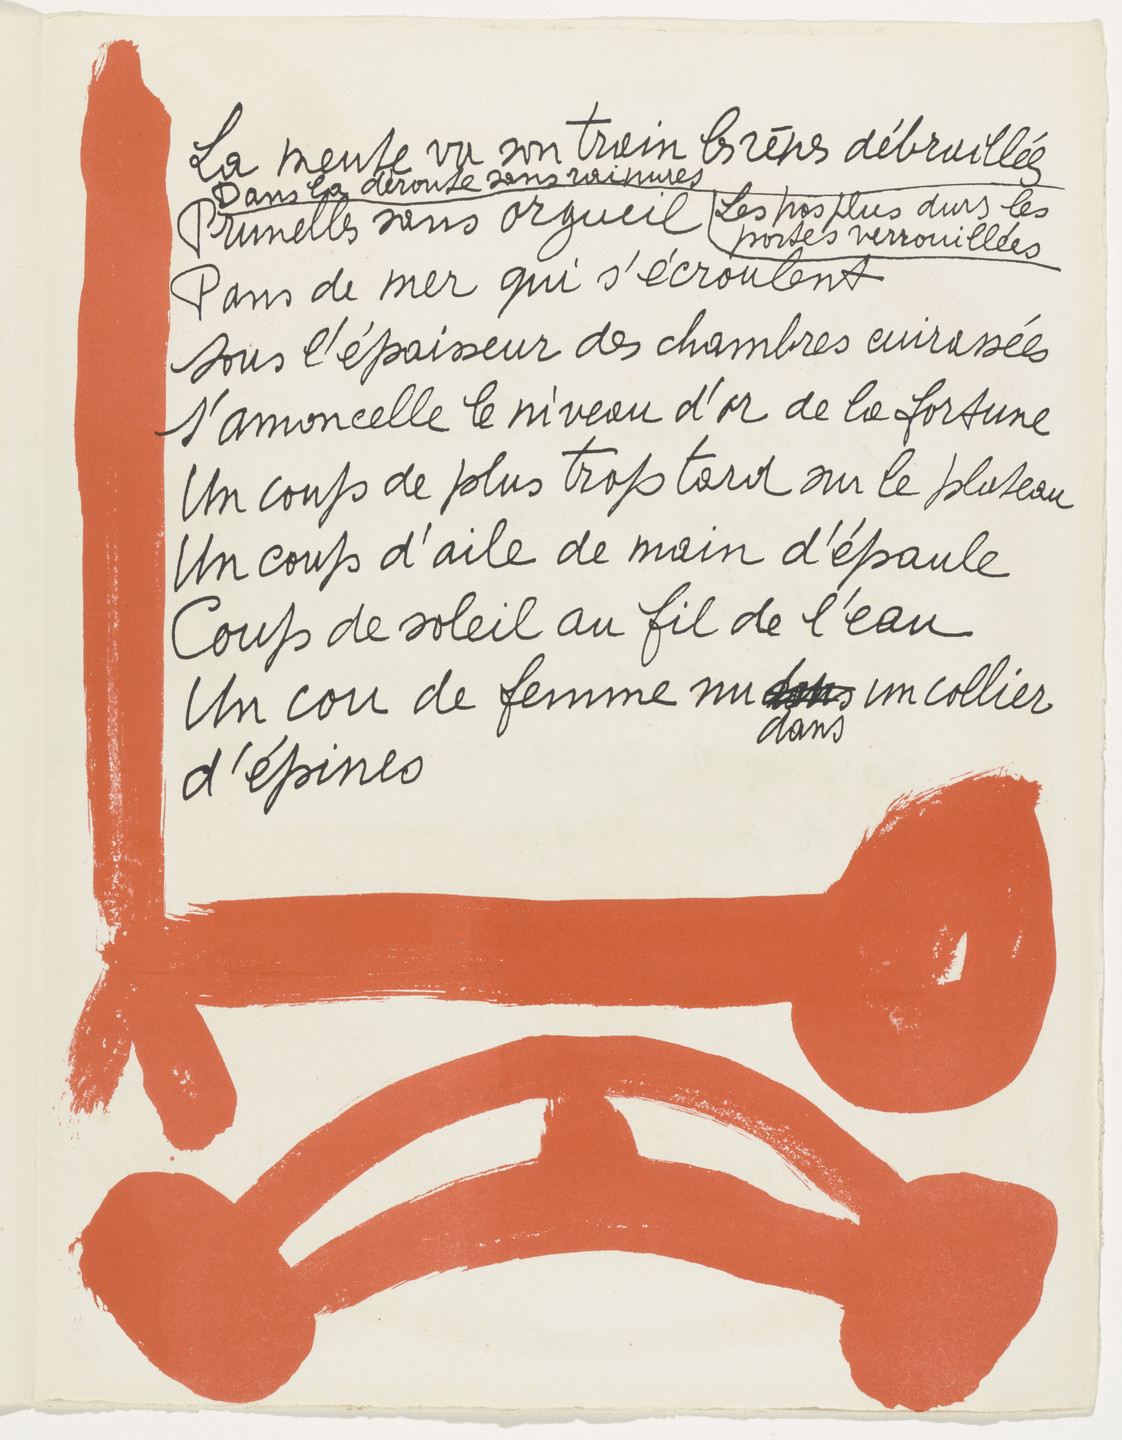 La meute va son train les rênes débraillées
Dans la déroute sans rainures
Prunelles sans orgueil
Les pas plus durs les
portes verrouillées
Pans de mer qui s'écroulent
sous l'épaisseur des chambres cuirassées
s'amoncelle le niveau d'or de la fortune
Un coup de plus trop tard sur le plateau
Un coup d'aile de main d'épaule
Coup de soleil au fil de l'eau
Un cou de femme nu un collier
dans
d'épines